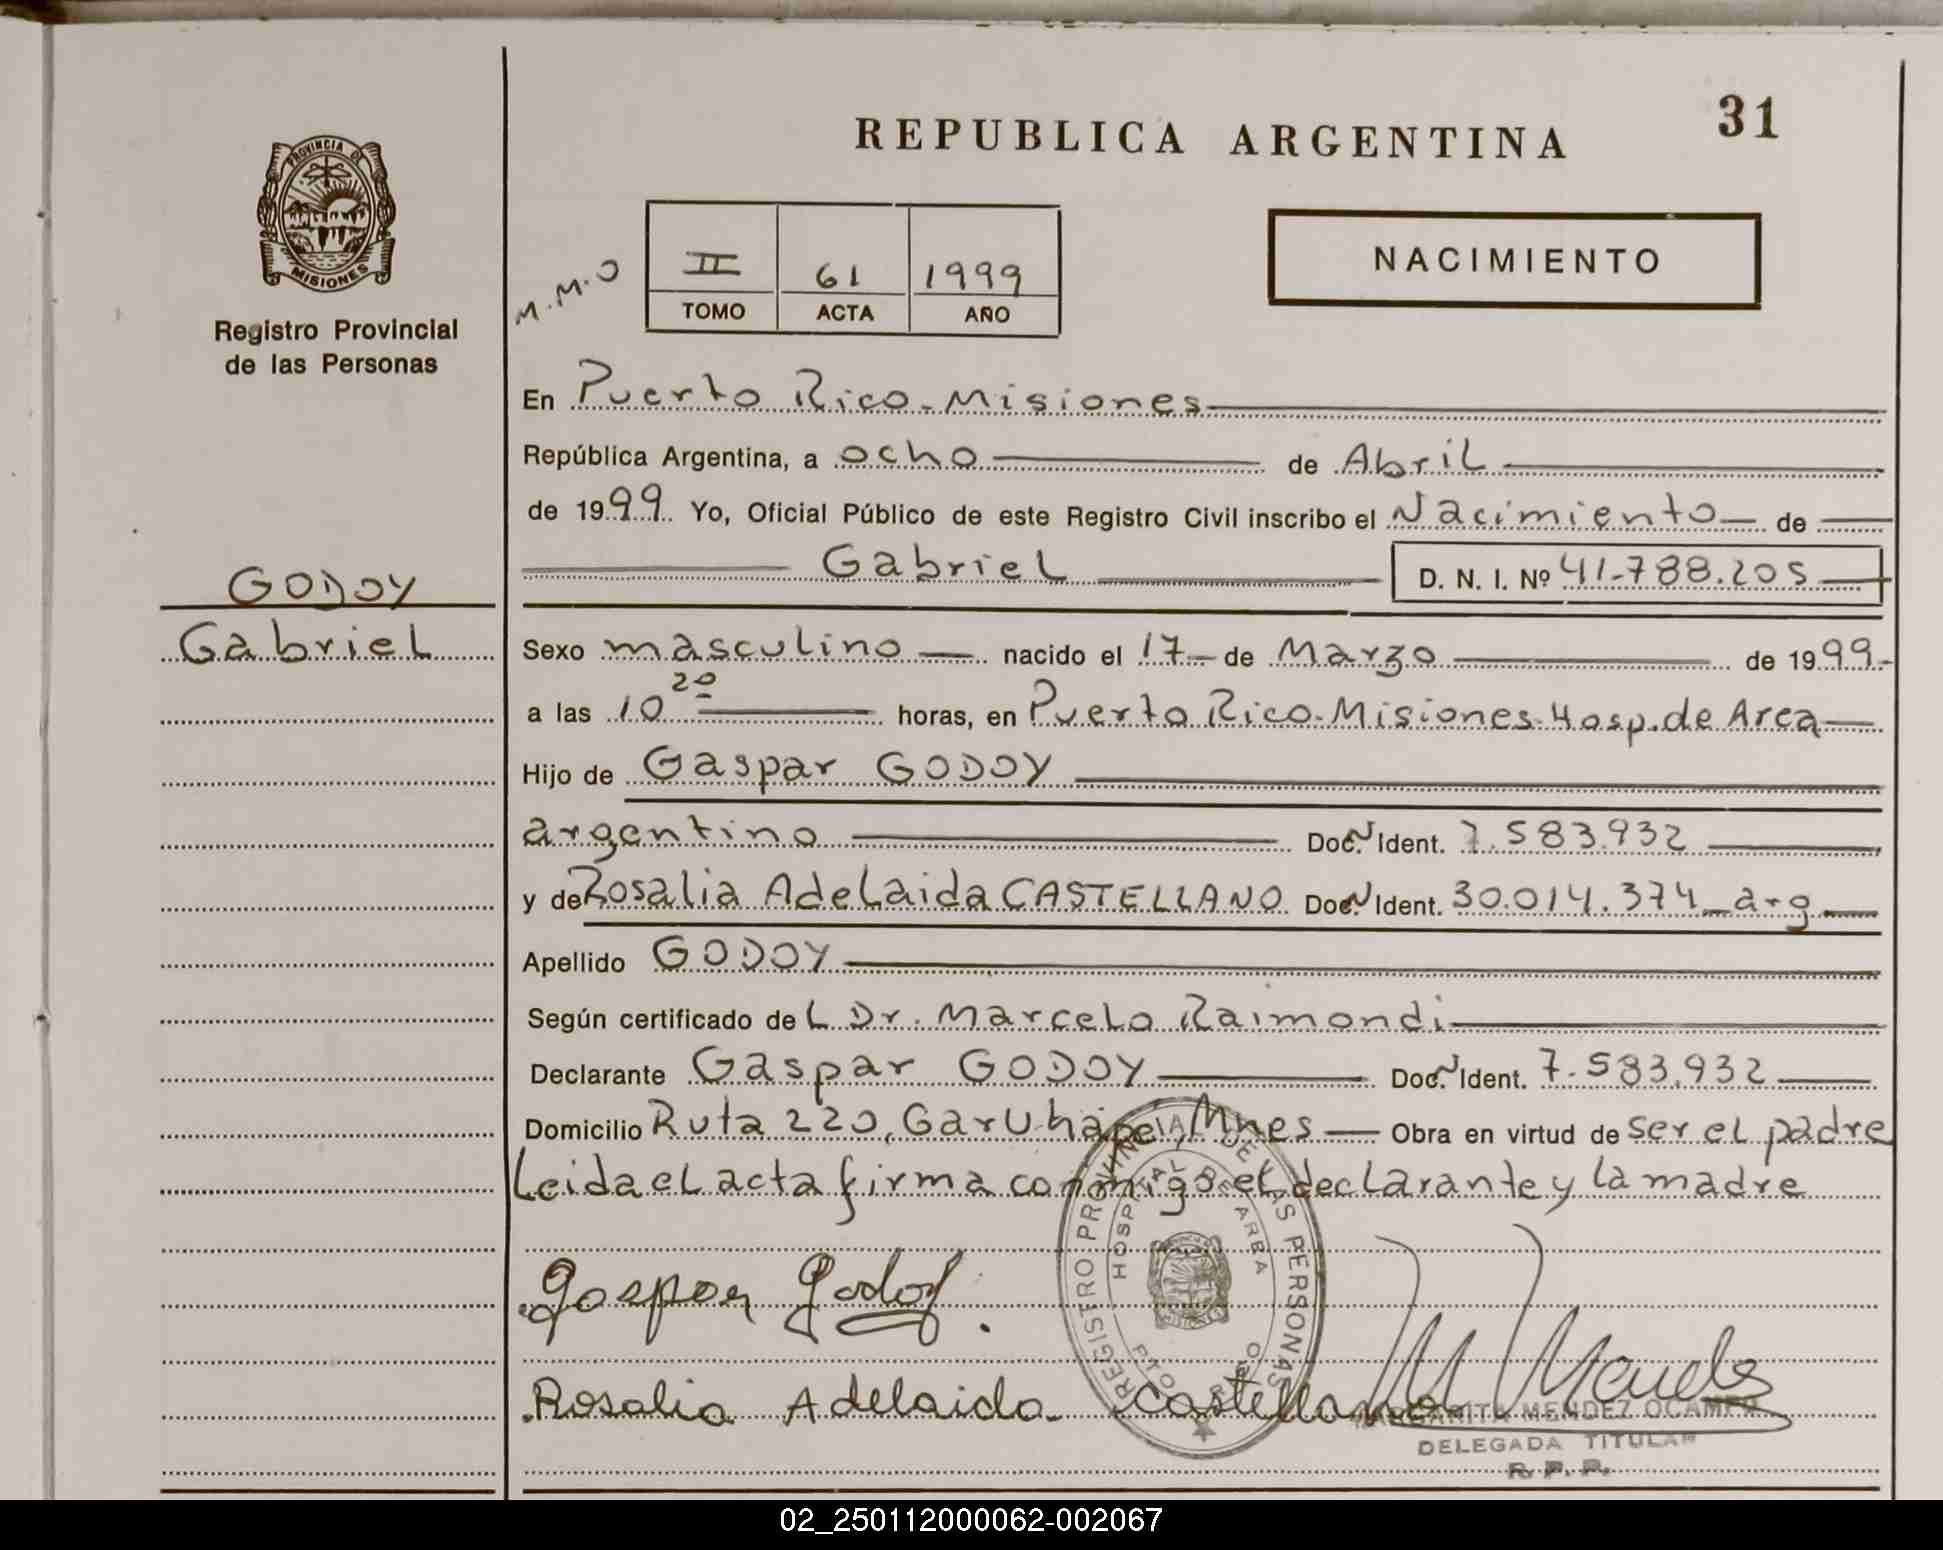 REPUBLICA ARGENTINA
31
PROVINCIA DE
MISIONES
Registro Provincial
de las Personas
M.M.O
II 61 1999
TOMO ACTA AÑO
NACIMIENTO
En Puerto Rico-Misiones
República Argentina, a ocho de Abril
de 1999 Yo, Oficial Público de este Registro Civil inscribo el Nacimiento de
Gabriel D. N. I. Nº 41-788.205
GODOY
Gabriel
Sexo masculino nacido el 17 de Marzo de 1999-
a las 10 20 horas, en Puerto Rico-Misiones-Hosp.de Area
Hijo de Gaspar GODOY
argentino Doc. N Ident. 7.583.932
y de Rosalia Adelaida CASTELLANO Doc. N Ident. 30.014.374 arg
Apellido GODOY
Según certificado del Dr. Marcelo Raimondi
Declarante Gaspar GODOY Doc. N Ident. 7.583.932
Domicilio Ruta 220, Garuhape, Mnes Obra en virtud de ser el padre
Leida el acta firma conmigo el declarante y la madre
Gaspar Godoy.
Rosalia Adelaida Castellano
REGISTRO PROVINCIAL DE LAS PERSONAS
HOSPITAL DE ARBA
PTO RICO
M Mendez
MARGARITA MENDEZ OCAMPO
DELEGADA TITULAR
R. P. P.
02_250112000062-002067